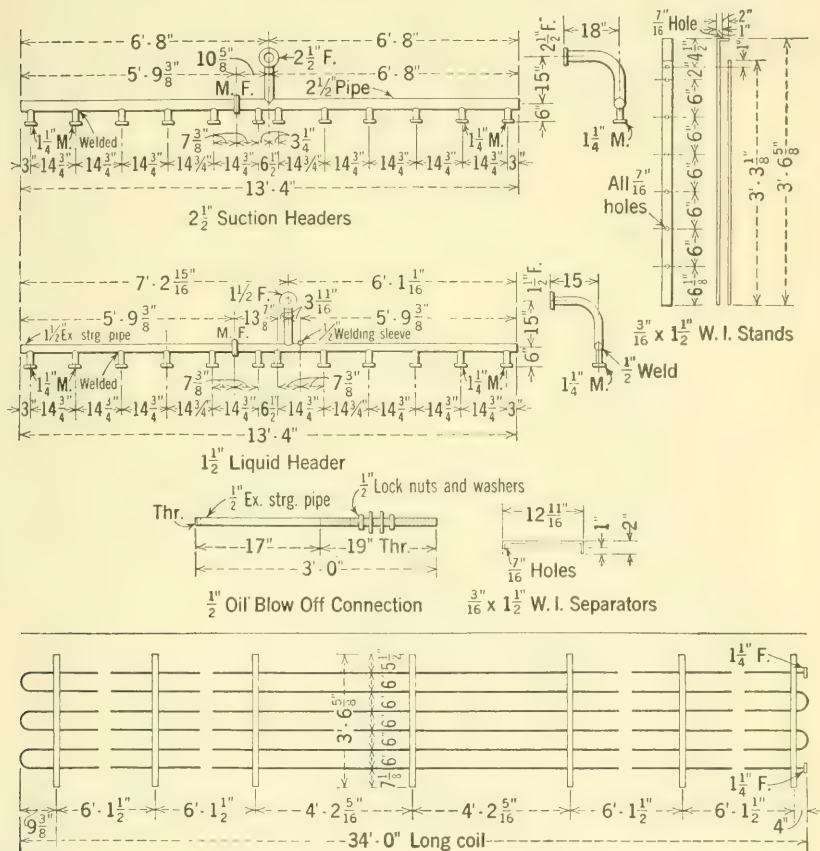 6'-8" 6'-8"
10 5/8" 2 1/2" F.
5'-9 3/8" 6'-8"
M. F. 2 1/2" Pipe
1 1/4" M. Welded 7 3/8" 3 1/4" 1 1/4" M.
3" 14 3/4" 14 3/4" 14 3/4" 14 3/4" 14 3/4" 6 1/2" 14 3/4" 14 3/4" 14 3/4" 14 3/4" 14 3/4" 3"
13'-4"
2 1/2" Suction Headers
18"
2 1/2" F.
15"
6"
1 1/4" M.
7/16" Hole 2"
1"
4 1/2" 1"
2"
6"
6"
6"
6"
6"
6 1/8"
All 7/16" holes
3'-3 1/8"
3'-6 5/8"
3/16" x 1 1/2" W. I. Stands
7'-2 15/16" 6'-1 1/16"
1 1/2 F. 3 11/16"
5'-9 3/8" 13 7/8" 5'-9 3/8"
1 1/2" Ex strg pipe M. F. 1/2" Welding sleeve
1 1/4" M. Welded 7 3/8" 7 3/8" 1 1/4" M.
3" 14 3/4" 14 3/4" 14 3/4" 14 3/4" 14 3/4" 6 1/2" 14 3/4" 14 3/4" 14 3/4" 14 3/4" 14 3/4" 3"
13'-4"
1 1/2" Liquid Header
15
1 1/2" F.
15"
6"
1/2" Weld
1 1/4" M.
1/2" Ex. strg. pipe 1/2" Lock nuts and washers
Thr.
17" 19" Thr.
3'-0"
1/2" Oil Blow Off Connection
12 11/16"
1" 2"
7/16" Holes
3/16" x 1 1/2" W. I. Separators
1 1/4" F.
5 1/2"
6'
6'
6'
6"
6"
7 1/8"
3'-6 5/8"
1 1/4" F.
9 3/8" 6'-1 1/2" 6'-1 1/2" 4'-2 5/16" 4'-2 5/16" 6'-1 1/2" 6'-1 1/2" 4"
34'-0" Long coil